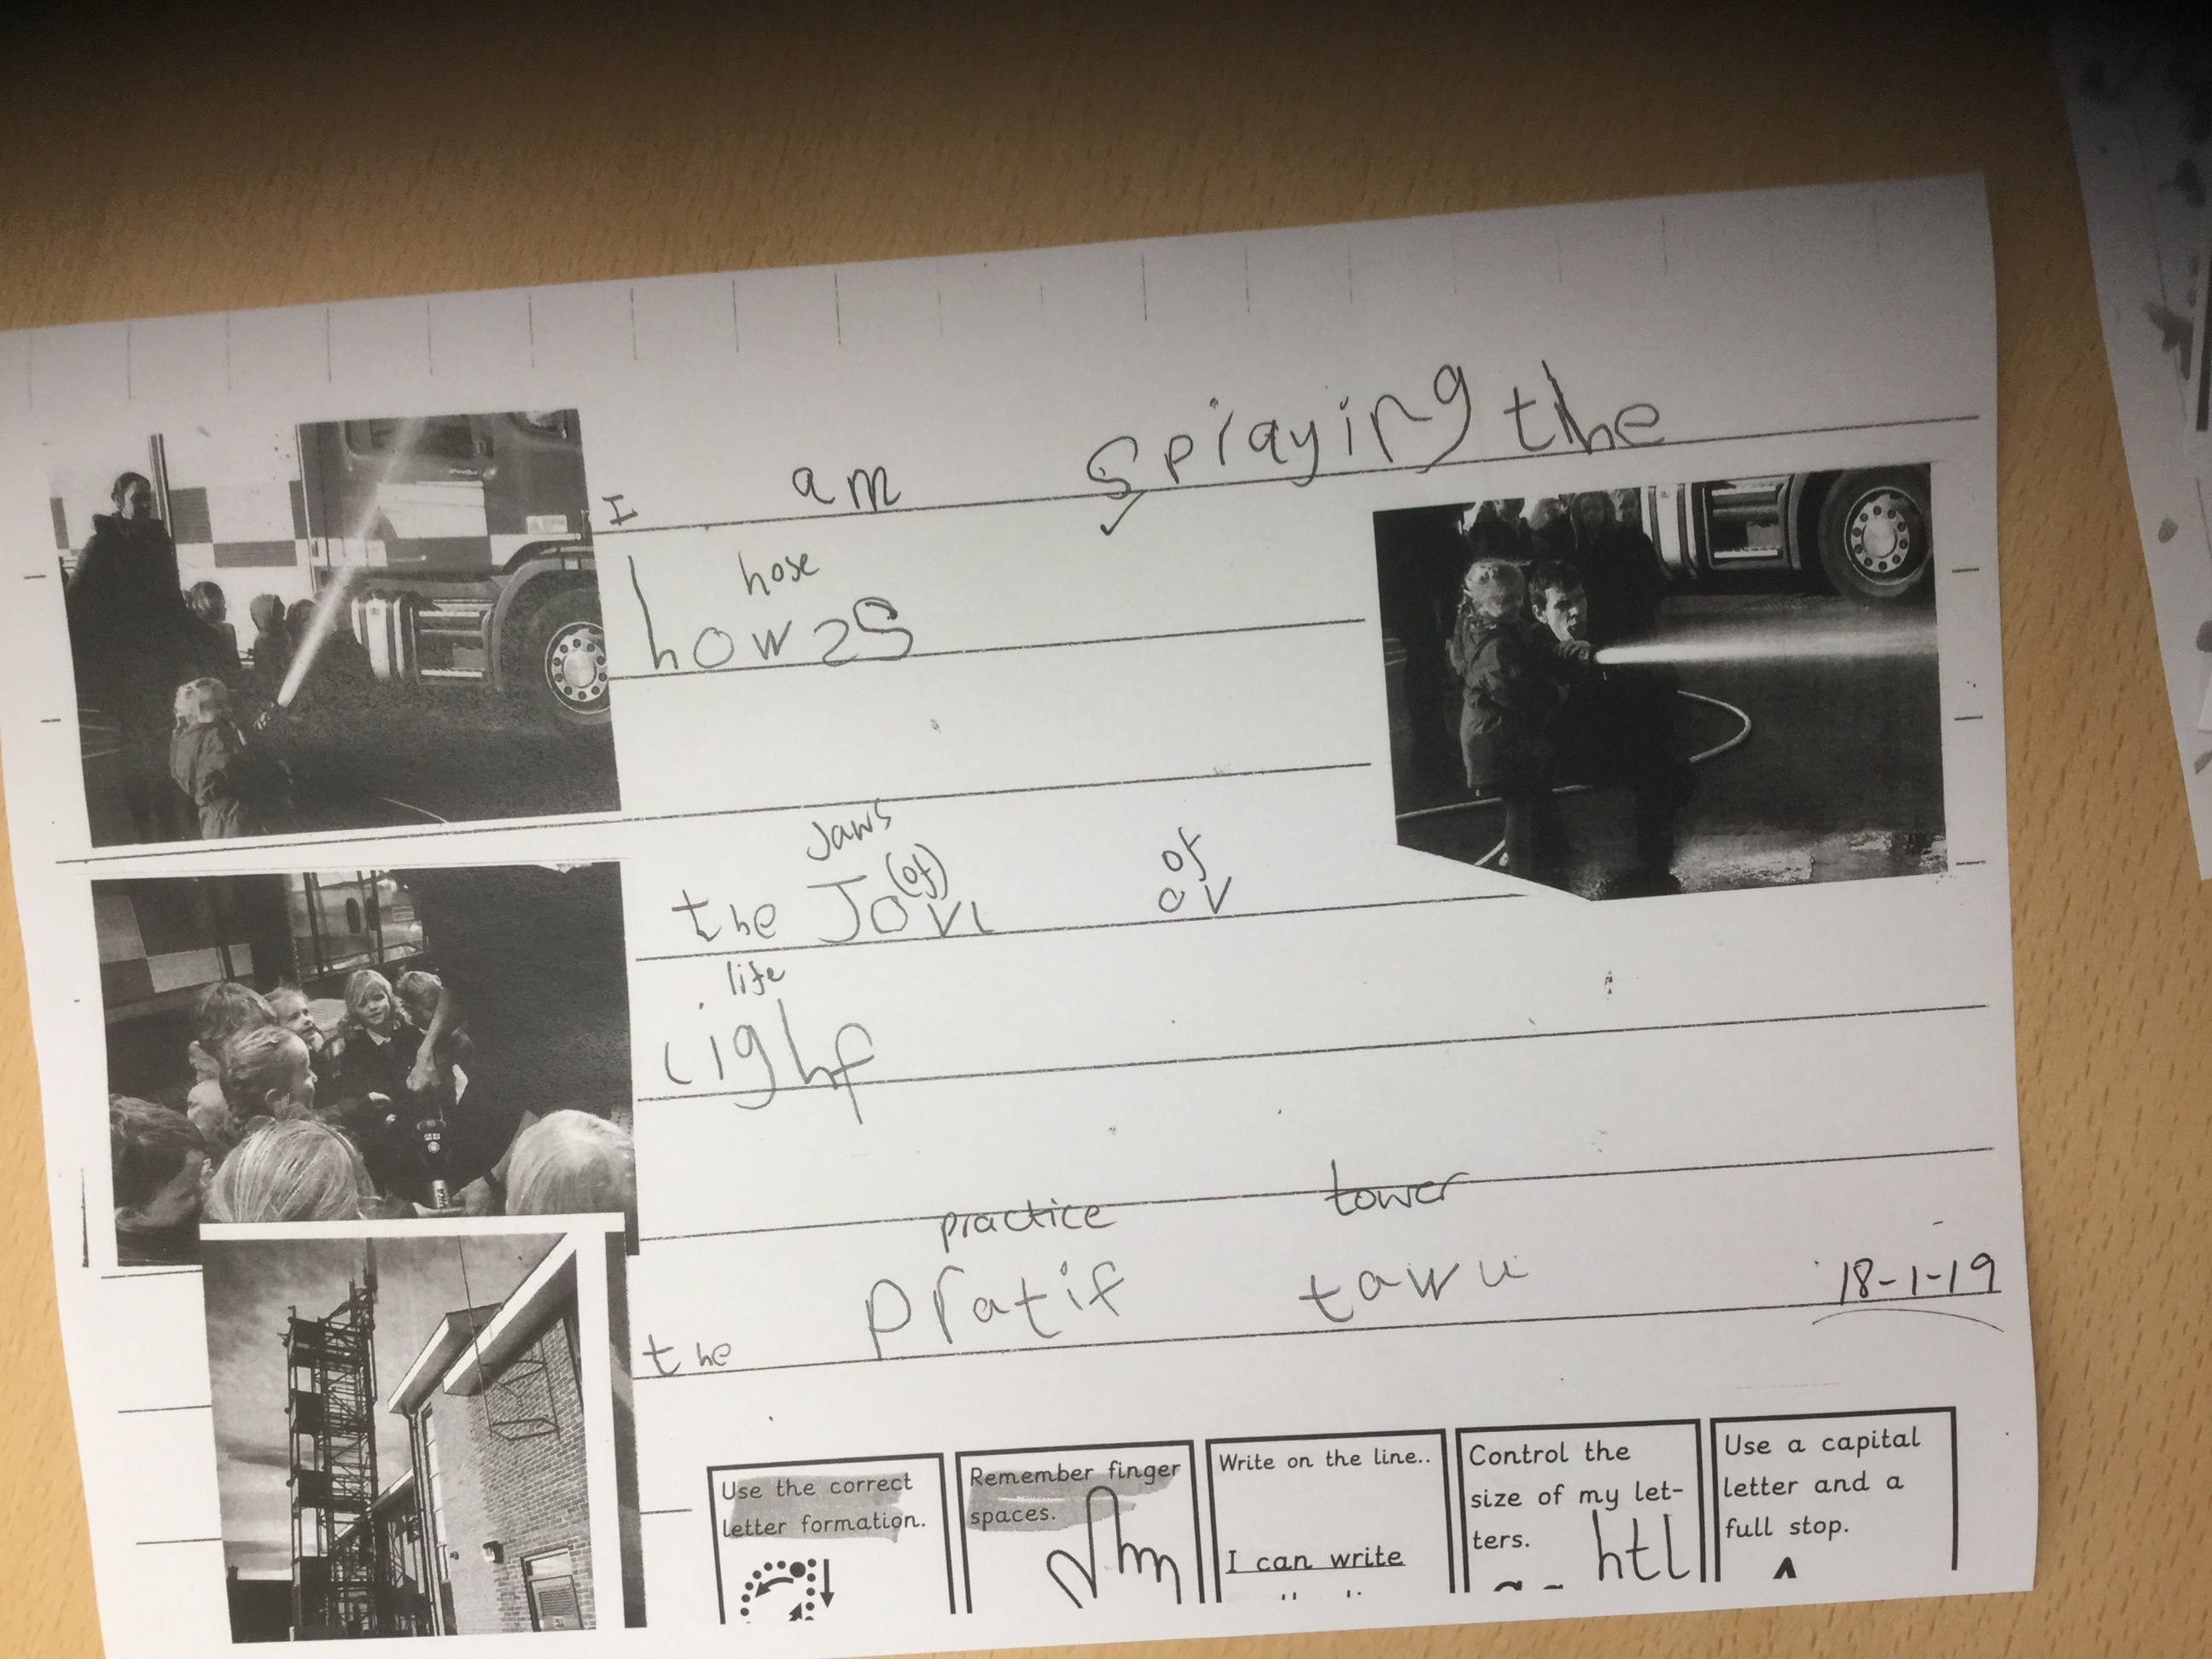 I am spraying the
hose
howzs
Jaws
(of) of
the Jovl ov
life
lighf
practice tower
the pratif tawu
18-1-19
Use the correct
letter formation.
Remember finger
spaces.
Write on the line..
I can write
Control the
size of my let-
ters.
htl
Use a capital
letter and a
full stop.